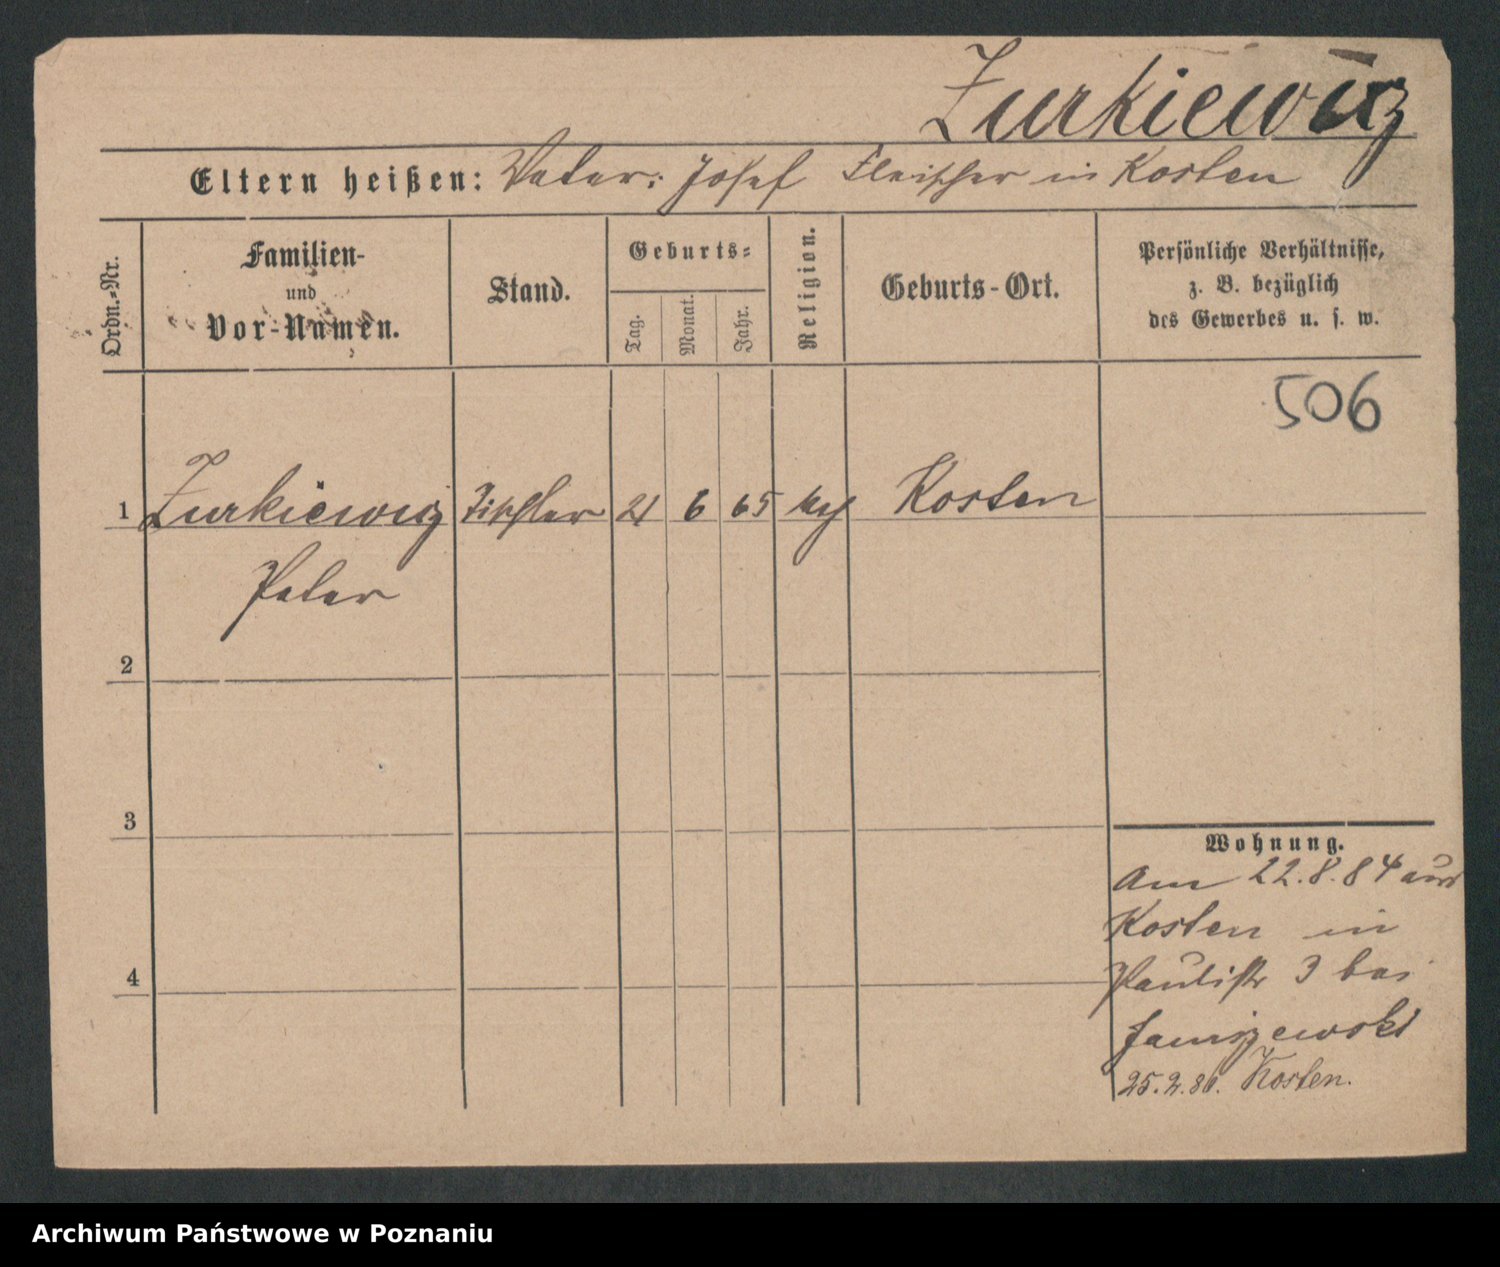 Zurkiewicz
Eltern heißen: Vater: Josef Fleischer in Kosten
Ordn.-Nr.
Familien-
und
Vor-Namen.
Stand.
Geburts-
Tag.
Monat.
Jahr.
Religion.
Geburts-Ort.
Persönliche Verhältnisse,
z. B. bezüglich
des Gewerbes u. s. w.
506
1 Zurkiewicz Tischler 21 6 65 Kosten
Peter
2
3
4
Wohnung.
Am 22.8.84 aus
Kosten in
Paulistr 3 bei
Janiszewski
25.2. Kosten.
Archiwum Państwowe w Poznaniu